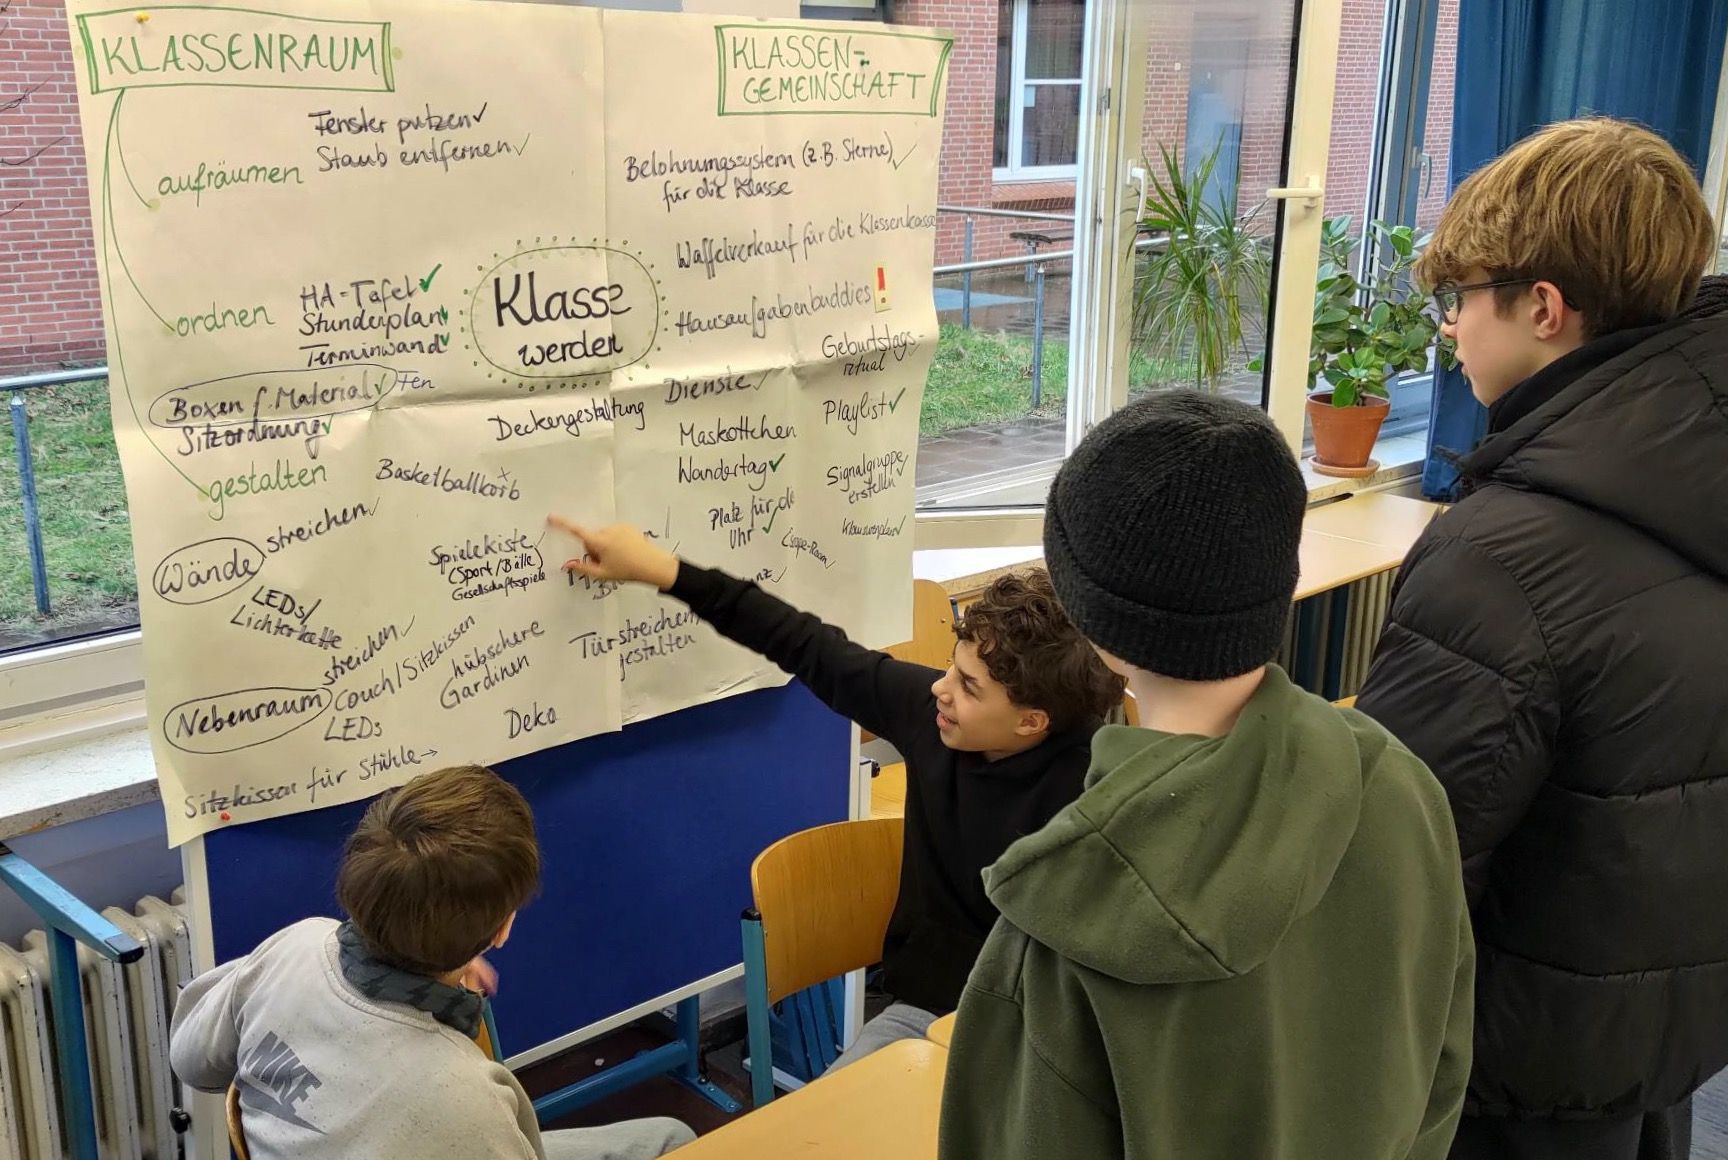 KLASSENRAUM
aufräumen
Fenster putzen ✓
Staub entfernen ✓
ordnen
HA-Tafel ✓
Stundenplan ✓
Terminwand ✓
Boxen f. Material ✓
Sitzordnung ✓
gestalten
Klasse
werden
Deckengestaltung
Basketballkorb
Wände
streichen ✓
LEDs/
Lichterkette
Spielekiste ✓
(Sport/Bälle)
Gesellschaftsspiele
Nebenraum
streichen ✓
Couch/Sitzkissen
LEDs
hübschere
Gardinen
Deko
Sitzkissen für Stühle →
Tür streichen/
gestalten
KLASSEN=
GEMEINSCHAFT
Belohnungssystem (z.B. Sterne) ✓
für die Klasse
Waffelverkauf für die Klassenkasse
Hausaufgabenbuddies
Geburtstags-
ritual
Dienste ✓
Playlist ✓
Maskottchen
Wandertag ✓
Signalgruppe ✓
erstellen
Platz für
Uhr ✓
NIKE